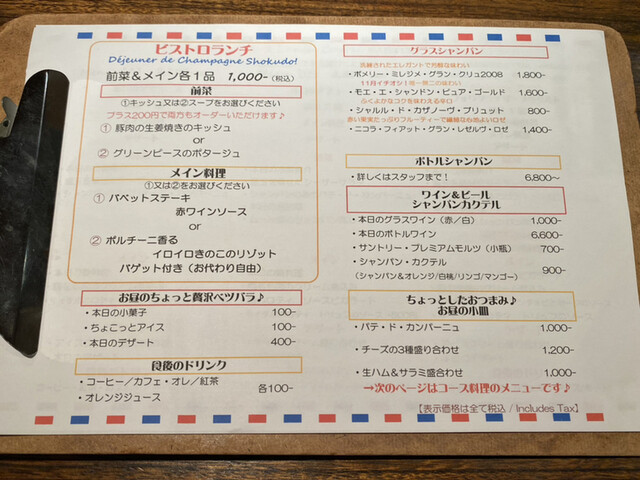 ビストロランチ
Déjeuner de Champagne Shokudo!
前菜&メイン各1品 1,000-(税込)
前菜
①キッシュ又は②スープをお選びください
プラス200円で両方もオーダーいただけます♪
① 豚肉の生姜焼きのキッシュ
or
② グリーンピースのポタージュ
メイン料理
①又は②をお選びください
① バベットステーキ
赤ワインソース
or
② ポルチーニ香る
イロイロきのこのリゾット
バゲット付き(お代わり自由)
お昼のちょっと贅沢ベツバラ♪
・本日の小菓子 100-
・ちょこっとアイス 100-
・本日のデザート 400-
食後のドリンク
・コーヒー/カフェ・オレ/紅茶
各100-
・オレンジジュース
グラスシャンパン
洗練されたエレガントで芳醇な味わい
・ポメリー・ミレジメ・グラン・クリュ2008 1,800-
11月イチオシ!唯一無二の味わい
・モエ・エ・シャンドン・ピュア・ゴールド 1,600-
ふくよかなコクを味わえる辛口
・シャルル・ド・カザノーヴ・ブリュット 800-
赤い果実たっぷりフルーティーで繊細な心地よいロゼ
・ニコラ・フィアット・グラン・レゼルヴ・ロゼ 1,400-
ボトルシャンパン
・詳しくはスタッフまで! 6,800〜
ワイン&ビール
シャンパンカクテル
・本日のグラスワイン(赤/白) 1,000-
・本日のボトルワイン 6,600-
・サントリー・プレミアムモルツ(小瓶) 700-
・シャンパン・カクテル
(シャンパン&オレンジ/白桃/リンゴ/マンゴー) 900-
ちょっとしたおつまみ♪
お昼の小皿
・パテ・ド・カンパーニュ 1,000-
・チーズの3種盛り合わせ 1,200-
・生ハム&サラミ盛合わせ 1,000-
→次のページはコース料理のメニューです♪
【表示価格は全て税込 / Includes Tax】